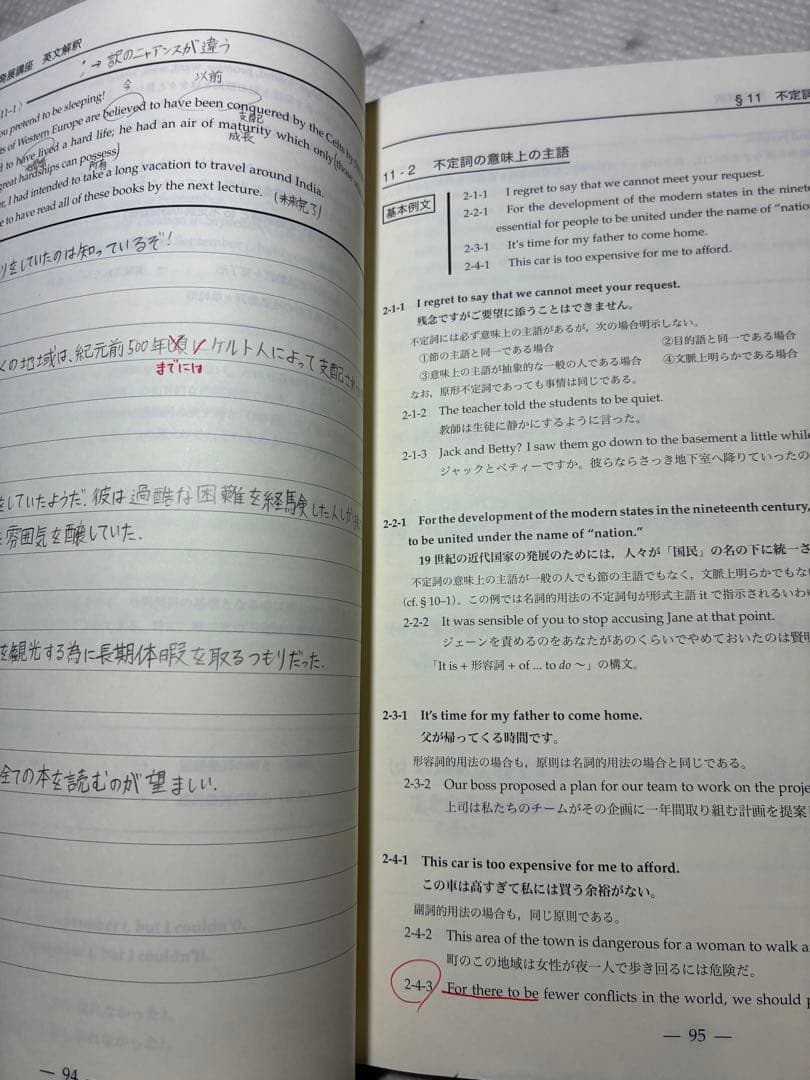 発展講座 英文解釈
→ 訳のニャアンスが違う
11-1)
今 以前
ou pretend to be sleeping!
ts of Western Europe are believed to have been conquered by the Celts by
支配
d to have lived a hard life; he had an air of maturity which only (those
成長
great hardships can possess)
所有
r, I had intended to take a long vacation to travel around India.
e to have read all of these books by the next lecture. (未来完了)
りをしていたのは知っているぞ!
くの地域は、紀元前500年頃にケルト人によって支配され
までには
をしていたようだ.彼は過酷な困難を経験した人しか
雰囲気を醸していた.
を観光する為に長期休暇を取るつもりだった.
全ての本を読むのが望ましい.
— 94
§11 不定詞
11-2 不定詞の意味上の主語
基本例文
2-1-1 I regret to say that we cannot meet your request.
2-2-1 For the development of the modern states in the ninete
essential for people to be united under the name of “natio
2-3-1 It's time for my father to come home.
2-4-1 This car is too expensive for me to afford.
2-1-1 I regret to say that we cannot meet your request.
残念ですがご要望に添うことはできません。
不定詞には必ず意味上の主語があるが，次の場合明示しない。
①節の主語と同一である場合 ②目的語と同一である場合
③意味上の主語が抽象的な一般の人である場合 ④文脈上明らかである場合
なお，原形不定詞であっても事情は同じである。
2-1-2 The teacher told the students to be quiet.
教師は生徒に静かにするように言った。
2-1-3 Jack and Betty? I saw them go down to the basement a little while
ジャックとベティーですか。彼らならさっき地下室へ降りていったの
2-2-1 For the development of the modern states in the nineteenth century,
to be united under the name of “nation.”
19世紀の近代国家の発展のためには，人々が「国民」の名の下に統一さ
不定詞の意味上の主語が一般の人でも節の主語でもなく，文脈上明らかでもな
(cf. §10–1)。この例では名詞的用法の不定詞句が形式主語 it で指示されるいわゆ
2-2-2 It was sensible of you to stop accusing Jane at that point.
ジェーンを責めるのをあなたがあのくらいでやめておいたのは賢明
「It is + 形容詞 + of ... to do ～」の構文。
2-3-1 It's time for my father to come home.
父が帰ってくる時間です。
形容詞的用法の場合も，原則は名詞的用法の場合と同じである。
2-3-2 Our boss proposed a plan for our team to work on the proje
上司は私たちのチームがその企画に一年間取り組む計画を提案
2-4-1 This car is too expensive for me to afford.
この車は高すぎて私には買う余裕がない。
副詞的用法の場合も，同じ原則である。
2-4-2 This area of the town is dangerous for a woman to walk a
町のこの地域は女性が夜一人で歩き回るには危険だ。
2-4-3 For there to be fewer conflicts in the world, we should p
— 95 —